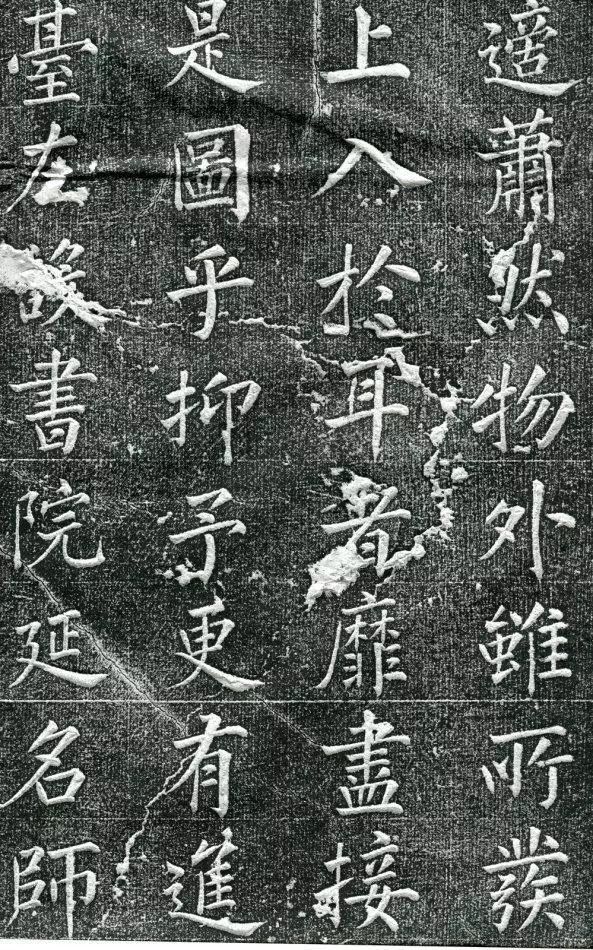 適蕭然物外雖所
上入於耳者靡盡接
是圖乎抑予更有進
臺左設書院延名師